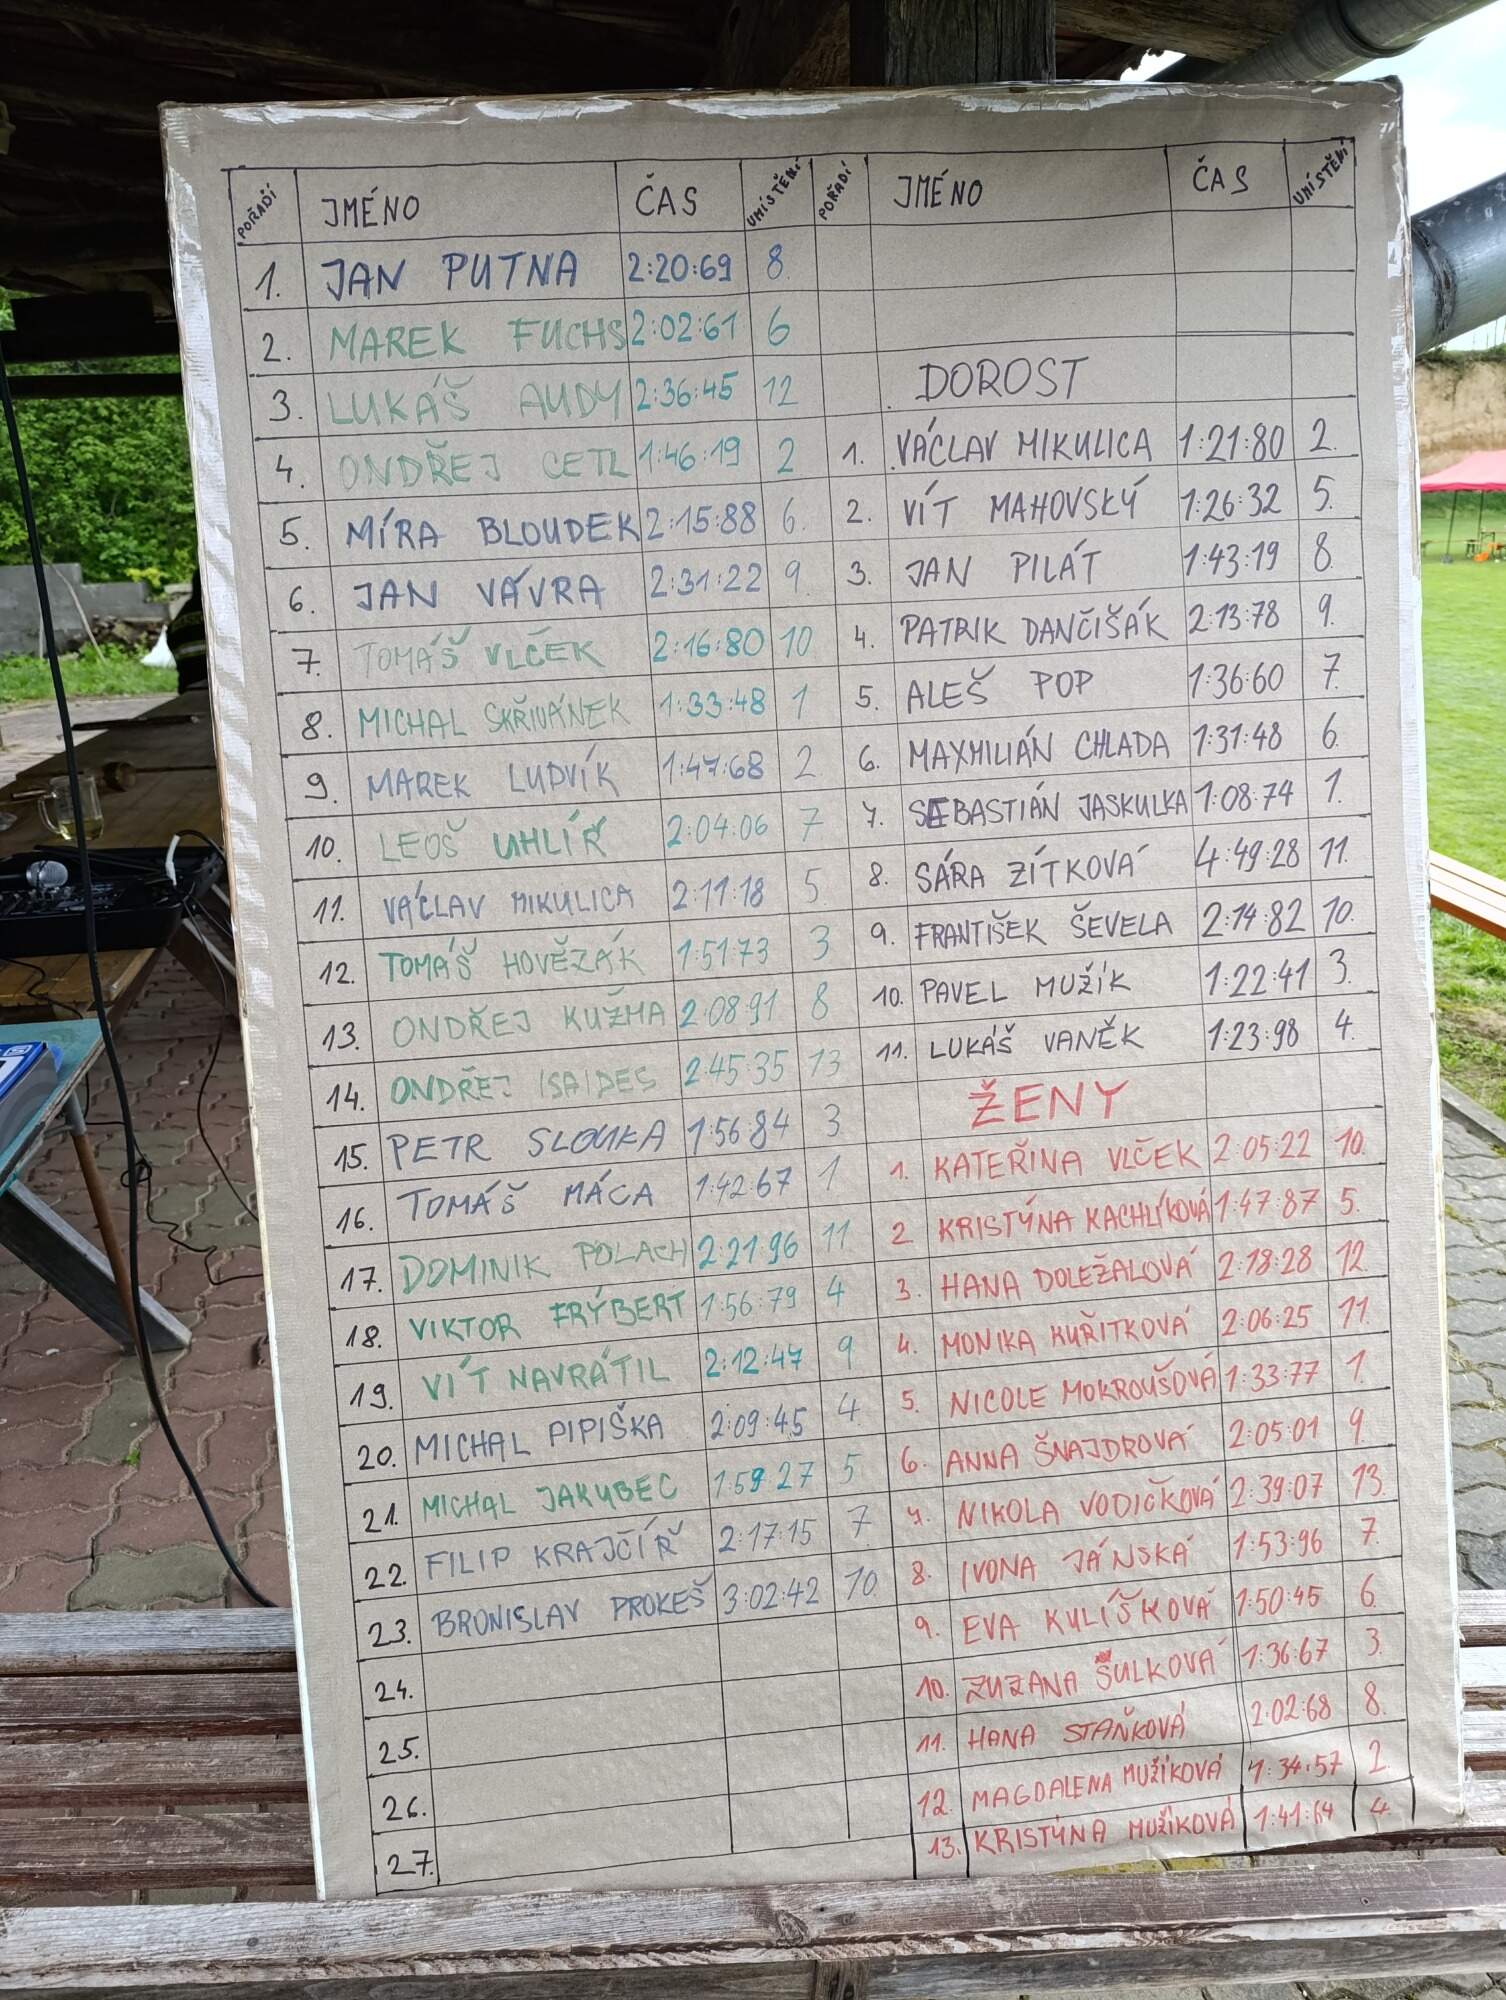 POŘADÍ JMÉNO ČAS UMÍSTĚNÍ
1. JAN PUTNA 2:20:69 8.
2. MAREK FUCHS 2:02:61 6
3. LUKÁŠ AUDY 2:36:45 12
4. ONDŘEJ CETL 1:46:19 2
5. MÍRA BLOUDEK 2:15:88 6.
6. JAN VÁVRA 2:31:22 9
7. TOMÁŠ VLČEK 2:16:80 10
8. MICHAL SKŘIVÁNEK 1:33:48 1
9. MAREK LUDVÍK 1:47:68 2
10. LEOŠ UHLÍŘ 2:04:06 7
11. VÁCLAV MIKULICA 2:11:18 5
12. TOMÁŠ HOVĚZÁK 1:51:73 3
13. ONDŘEJ KUŽMA 2:08:91 8
14. ONDŘEJ ISAIDES 2:45:35 13
15. PETR SLOUKA 1:56:84 3
16. TOMÁŠ MÁCA 1:42:67 1
17. DOMINIK POLACH 2:21:96 11
18. VIKTOR FRÝBERT 1:56:79 4
19. VÍT NAVRÁTIL 2:12:47 9
20. MICHAL PIPIŠKA 2:09:45 4
21. MICHAL JAKUBEC 1:59:27 5
22. FILIP KRAJČÍŘ 2:17:15 7
23. BRONISLAV PROKEŠ 3:02:42 10.
24.
25.
26.
27.
POŘADÍ JMÉNO ČAS UMÍSTĚNÍ
DOROST
1. VÁCLAV MIKULICA 1:21:80 2.
2. VÍT MAHOVSKÝ 1:26:32 5.
3. JAN PILÁT 1:43:19 8
4. PATRIK DANČIŠÁK 2:13:78 9.
5. ALEŠ POP 1:36:60 7.
6. MAXMILIÁN CHLADA 1:31:48 6.
7. SEBASTIÁN JASKULKA 1:08:74 1.
8. SÁRA ZÍTKOVÁ 4:49:28 11.
9. FRANTIŠEK ŠEVELA 2:14:82 10.
10. PAVEL MUŽÍK 1:22:41 3.
11. LUKÁŠ VANĚK 1:23:98 4.
ŽENY
1. KATEŘINA VLČEK 2:05:22 10.
2 KRISTÝNA KACHLÍKOVÁ 1:47:87 5.
3. HANA DOLEŽALOVÁ 2:18:28 12.
4. MONIKA KUŘITKOVÁ 2:06:25 11.
5. NICOLE MOKROUŠOVÁ 1:33:77 1.
6. ANNA ŠNAJDROVÁ 2:05:01 9.
7. NIKOLA VODIČKOVÁ 2:39:07 13.
8. IVONA JÁNSKÁ 1:53:96 7.
9. EVA KULÍŠKOVÁ 1:50:45 6.
10. ZUZANA ŠULKOVÁ 1:36:67 3.
11. HANA STAŇKOVÁ 2:02:68 8.
12. MAGDALENA MUŽÍKOVÁ 1:34:57 2.
13. KRISTÝNA MUŽÍKOVÁ 1:41:64 4.